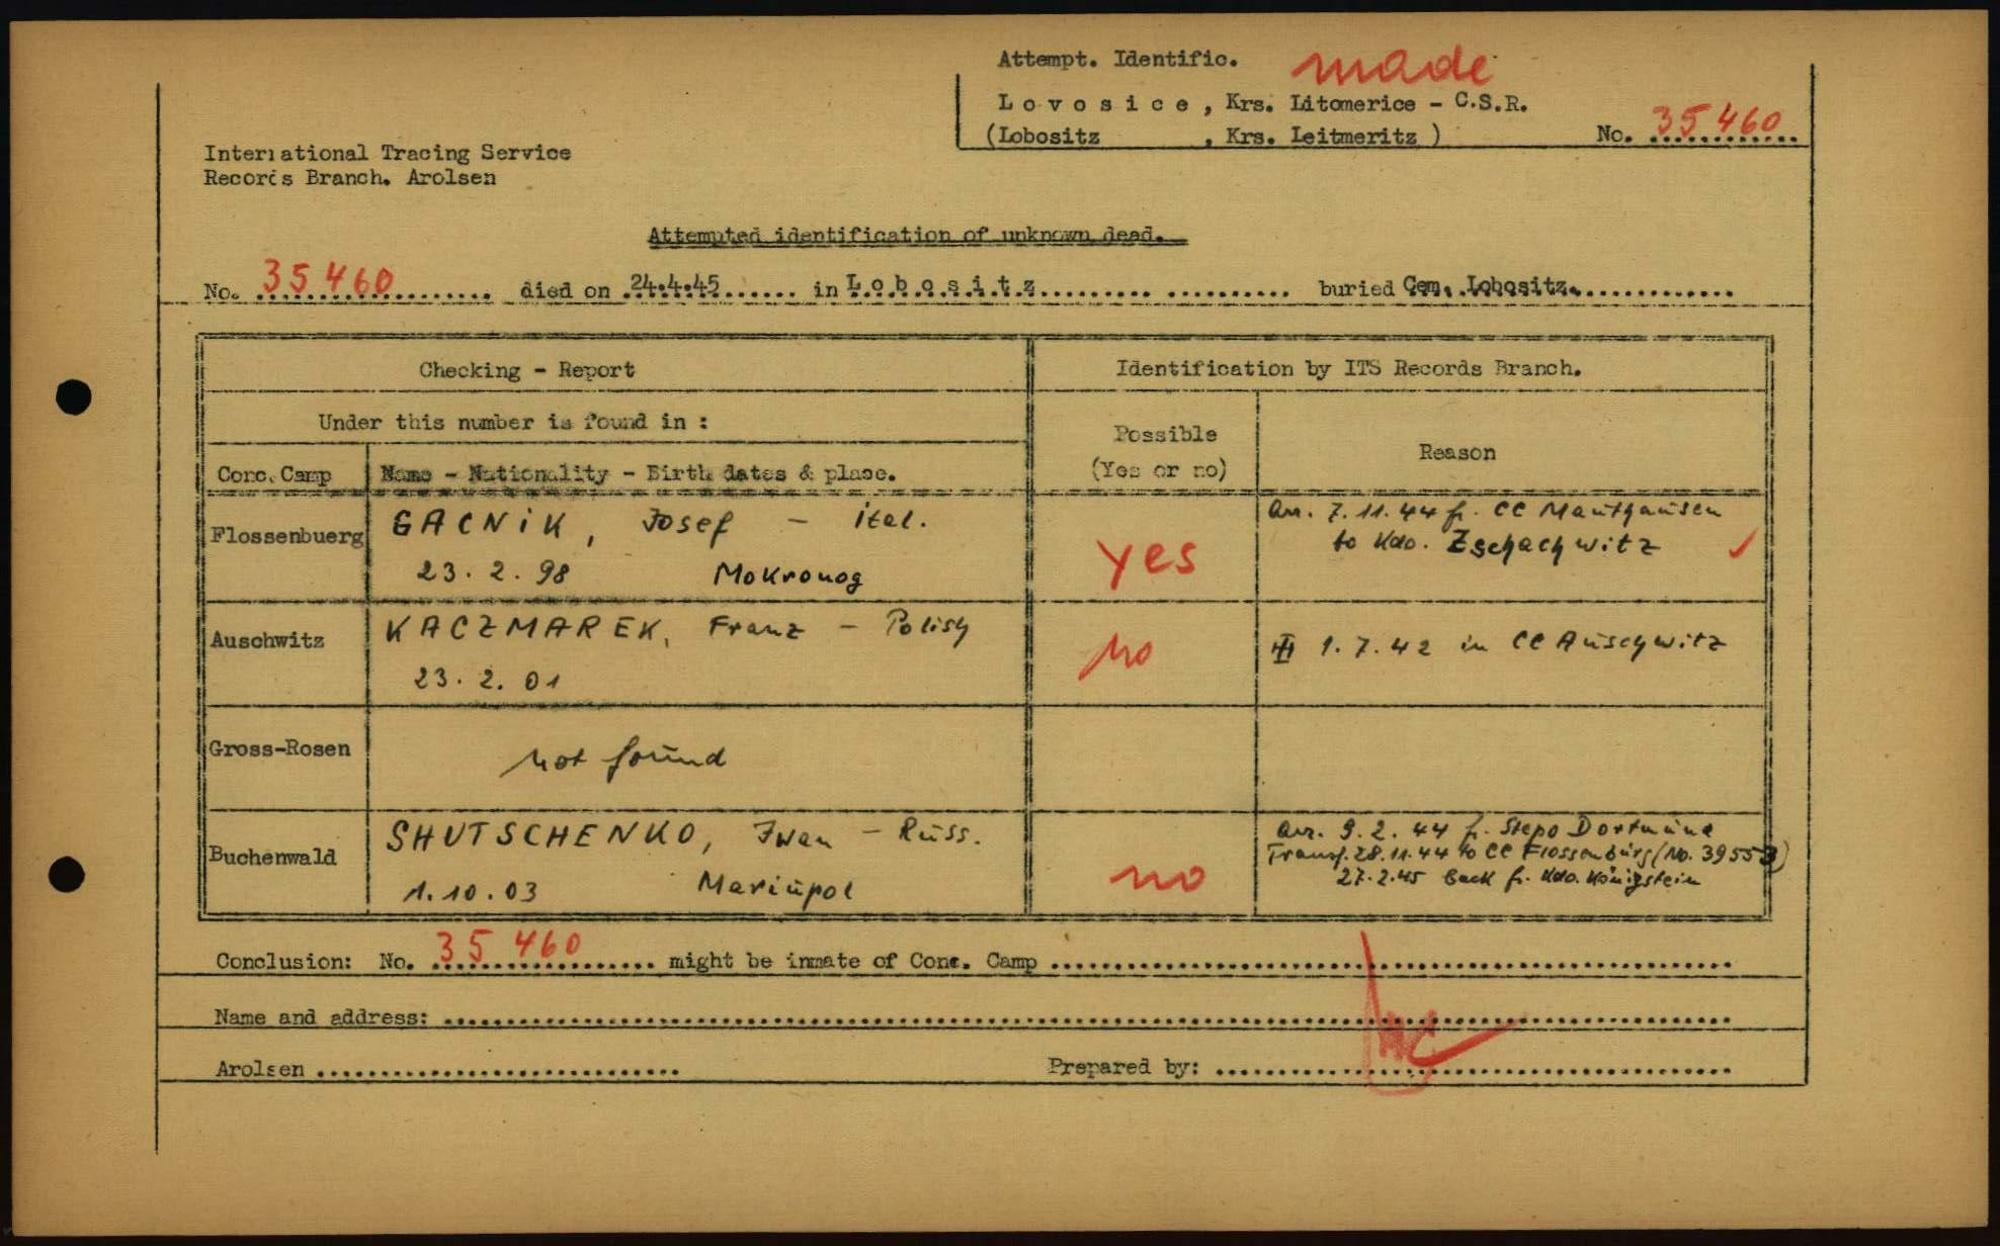 Attempt. Identific. made
L o v o s i c e , Krs. Litomerice - C.S.R.
(Lobositz , Krs. Leitmeritz ) No. 35 460
International Tracing Service
Records Branch. Arolsen
Attempted identification of unknown dead.
No. 35 460 died on 24.4.45 in L o b o s i t z buried Cem. Lobositz.
Checking - Report
Identification by ITS Records Branch.
Under this number is found in :
Possible
(Yes or no)
Reason
Conc. Camp
Name - Nationality - Birth dates & place.
Flossenbuerg
GACNIK, Josef - ital.
23. 2. 98 Mokronog
yes
arr. 7. 11. 44 fr. CC Mauthausen
to Kdo. Zschachwitz ✓
Auschwitz
KACZMAREK, Franz - Polish
23. 2. 01
no
1. 7. 42 in CC Auschwitz
Gross-Rosen
not found
Buchenwald
SHUTSCHENKO, Iwan - Russ.
1. 10. 03 Mariupol
no
arr. 9. 2. 44 fr. Stapo Dortmund
Transf. 28.11.44 to CC Flossenbürg (No. 39553)
27.2.45 back fr. Kdo. Königstein
Conclusion: No. 35 460 might be inmate of Conc. Camp
Name and address:
Arolsen
Prepared by: